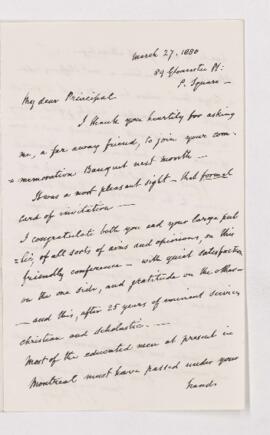 march 27. 1880
89 Gloucester Pl:
P. Square -
My dear Principal
I thank you heartily for asking
me, a far away friend, to join your com
= memoration Banquet next month -
It was a most pleasant sight - that formal
card of invitation -
I congratulate both you and your large pub
= lic, of all sorts of aims and opinions, on this
friendly conference - with quiet satisfaction
on the one side, and gratitude on the other -
- and this, after 25 years of eminent services
christian and scholastic. -
Most of the educated men at present in
Montreal must have passed under your
hands